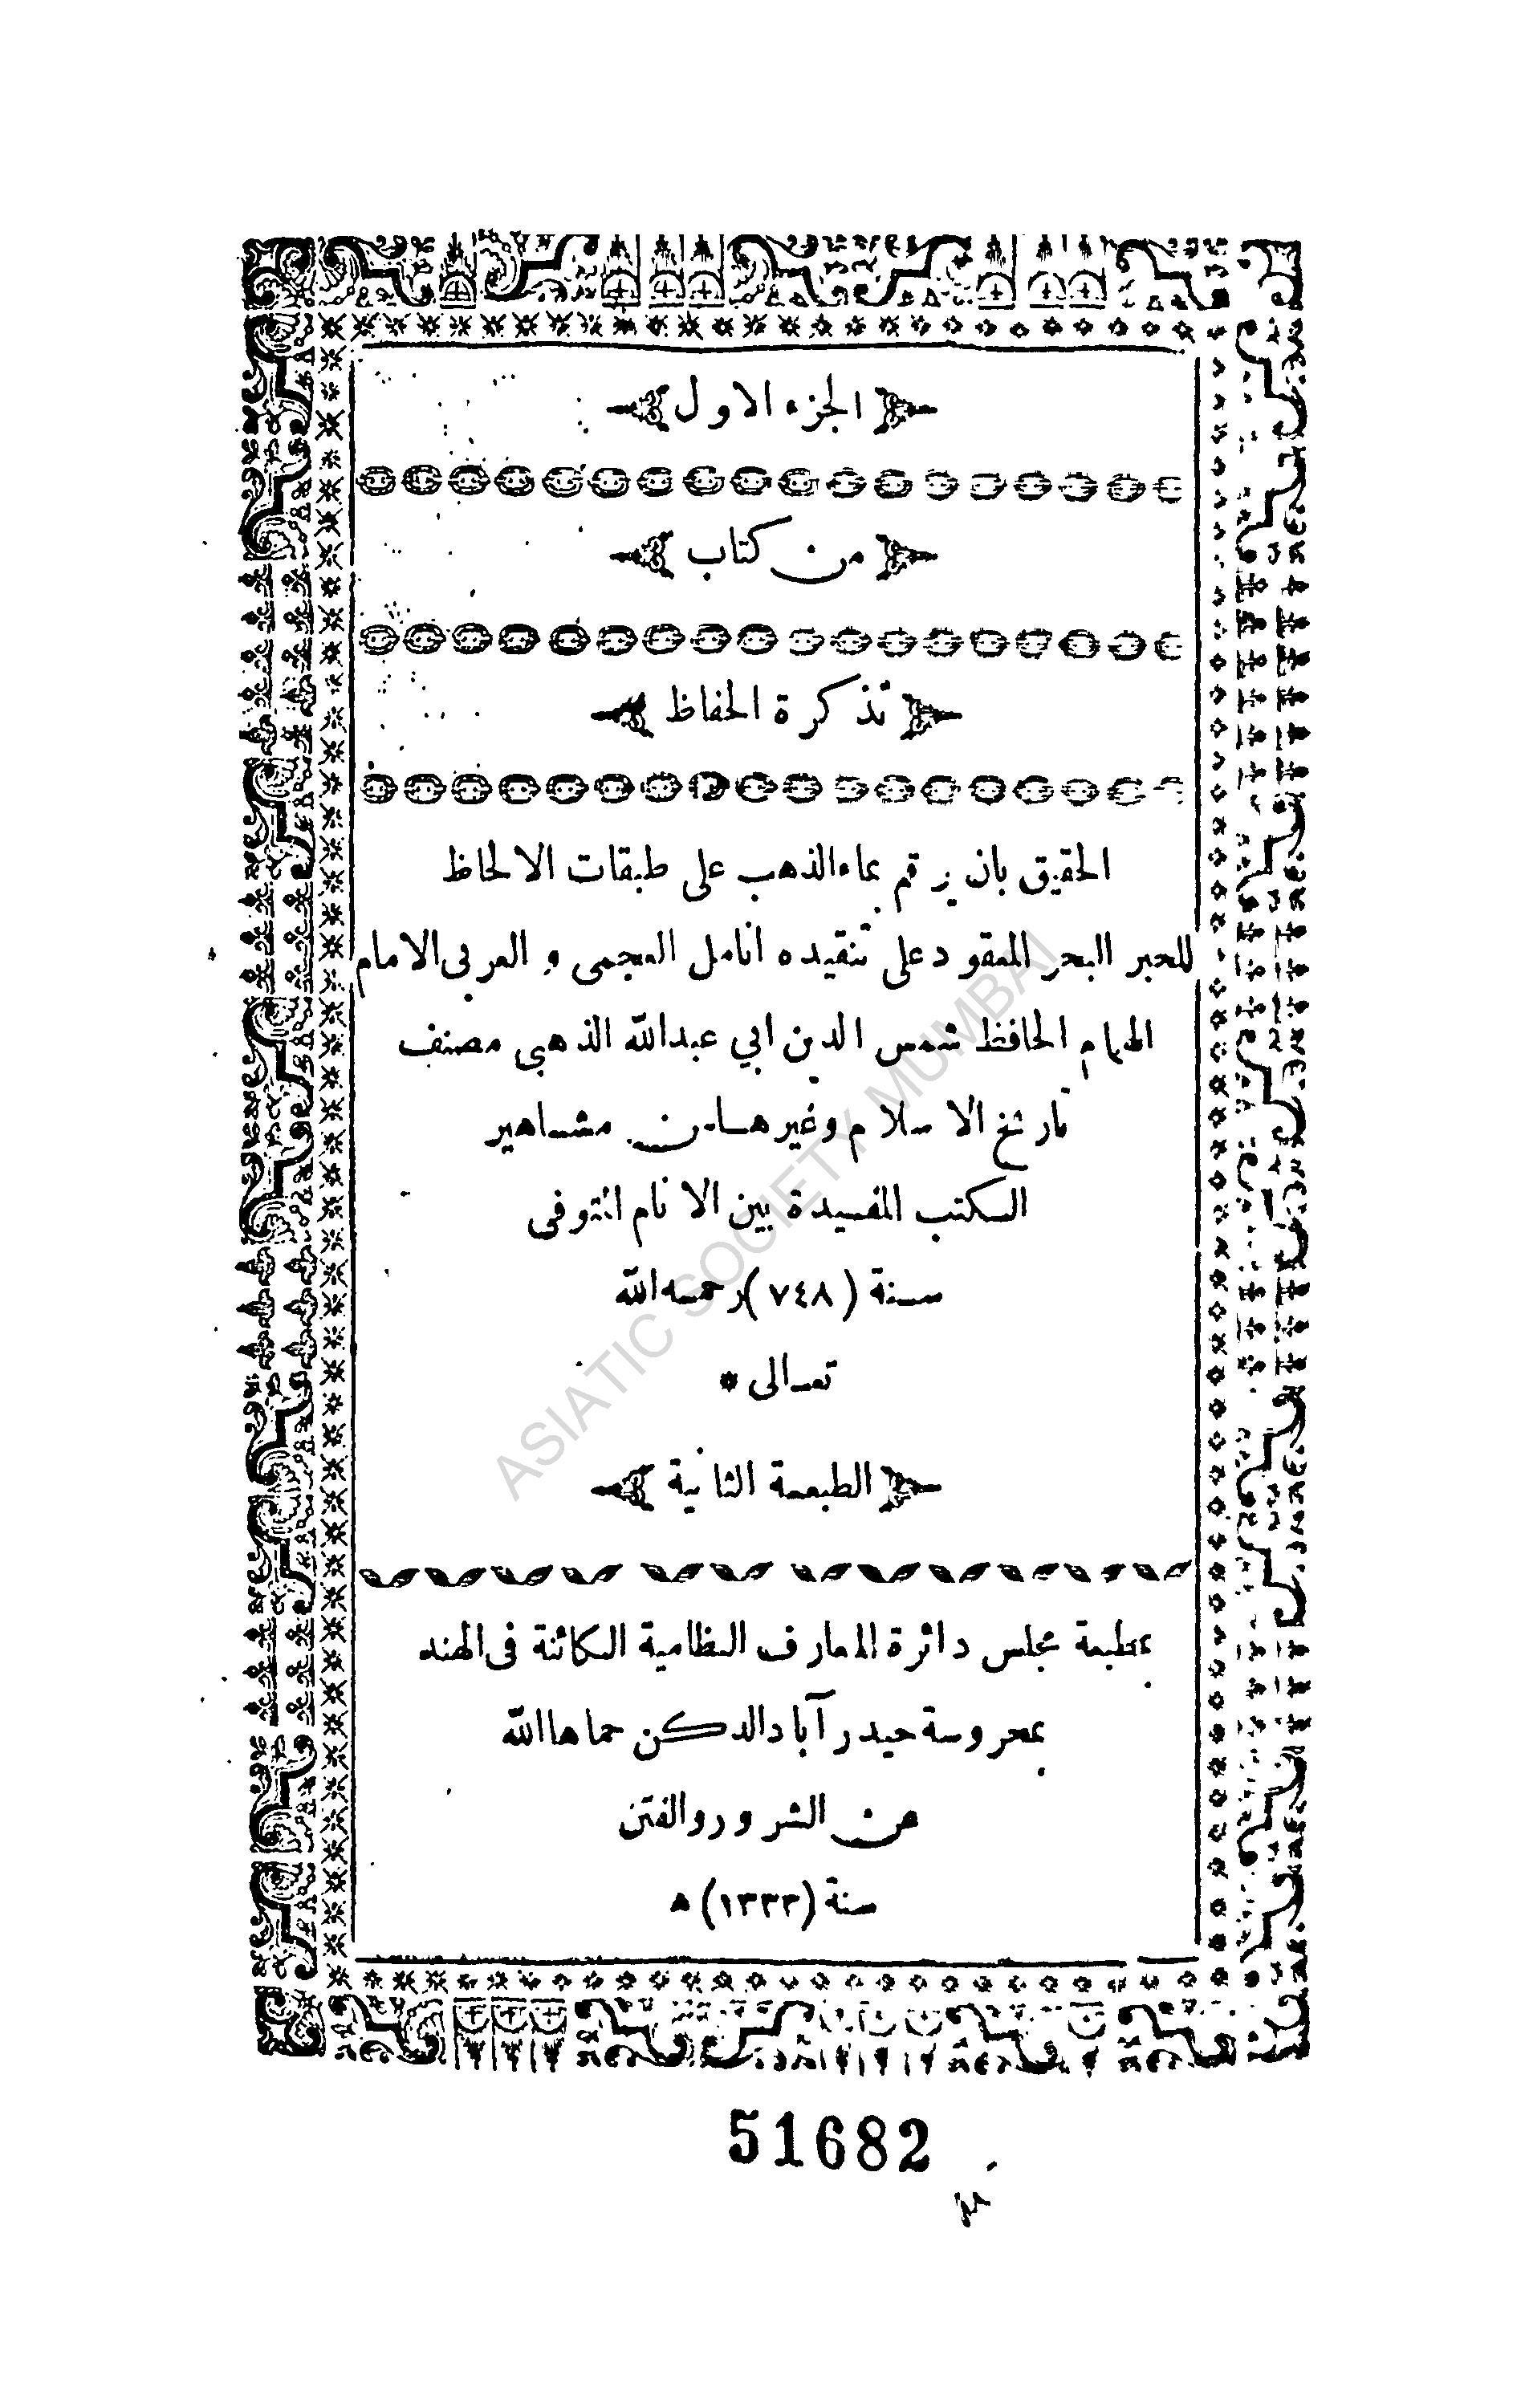 الجزء الاول
من كتاب
تذكرة الحفاظ
الحقيق بان يرقم بماء الذهب على طبقات الالحاظ
للحبر البحر المعقود على تنقيده انامل العجمى و العربى الامام
الهمام الحافظ شمس الدين ابي عبدالله الذهبي مصنف
تاريخ الاسلام وغيرها من مشاهير
الكتب المفيدة بين الانام المتوفى
سنة (٧٤٨) رحمه الله
تعالى *
الطبعة الثانية
بمطبعة مجلس دائرة المعارف النظامية الكائنة فى الهند
بمحروسة حيدرآباد الدكن حماها الله
عن الشرور والفتن
سنة (١٣٣٣) ه
51682
ASIATIC SOCIETY MUMBAI